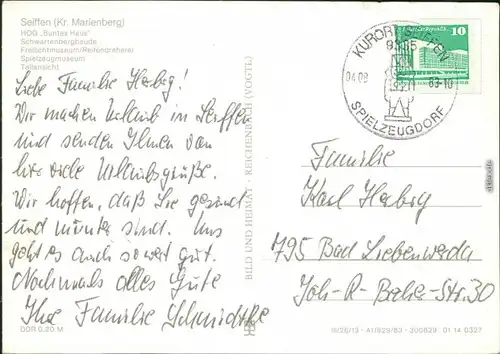 Seiffen (Kr. Marienberg)
HOG „Buntes Haus"
Schwartenbergbaude
Freilichtmuseum/Reifendreherei
Spielzeugmuseum
Teilansicht
Liebe Familie Herbrg!
Wir machen Urlaub in Seiffen
und senden Ihnen von
hier viele Urlaubsgrüße.
Wir hoffen, daß Sie gesund
und munter sind. Uns
geht es auch soweit gut.
Nochmals alles Gute
Ihre Familie Schmidtke
DDR 0,20 M
BILD UND HEIMAT · REICHENBACH (VOGTL)
KURORT SEIFFEN
9335
04.08
83-10
SPIELZEUGDORF
10
Familie
Karl Herbrg
795 Bad Liebenwerda
Joh-R-Becher-Str. 30
III/26/13 · A1/829/83 · 300629 01 14 0327